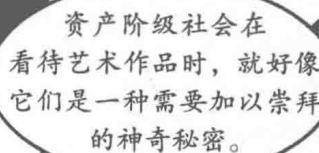 资产阶级社会在
看待艺术作品时，就好像
它们是一种需要加以崇拜
的神奇秘密。